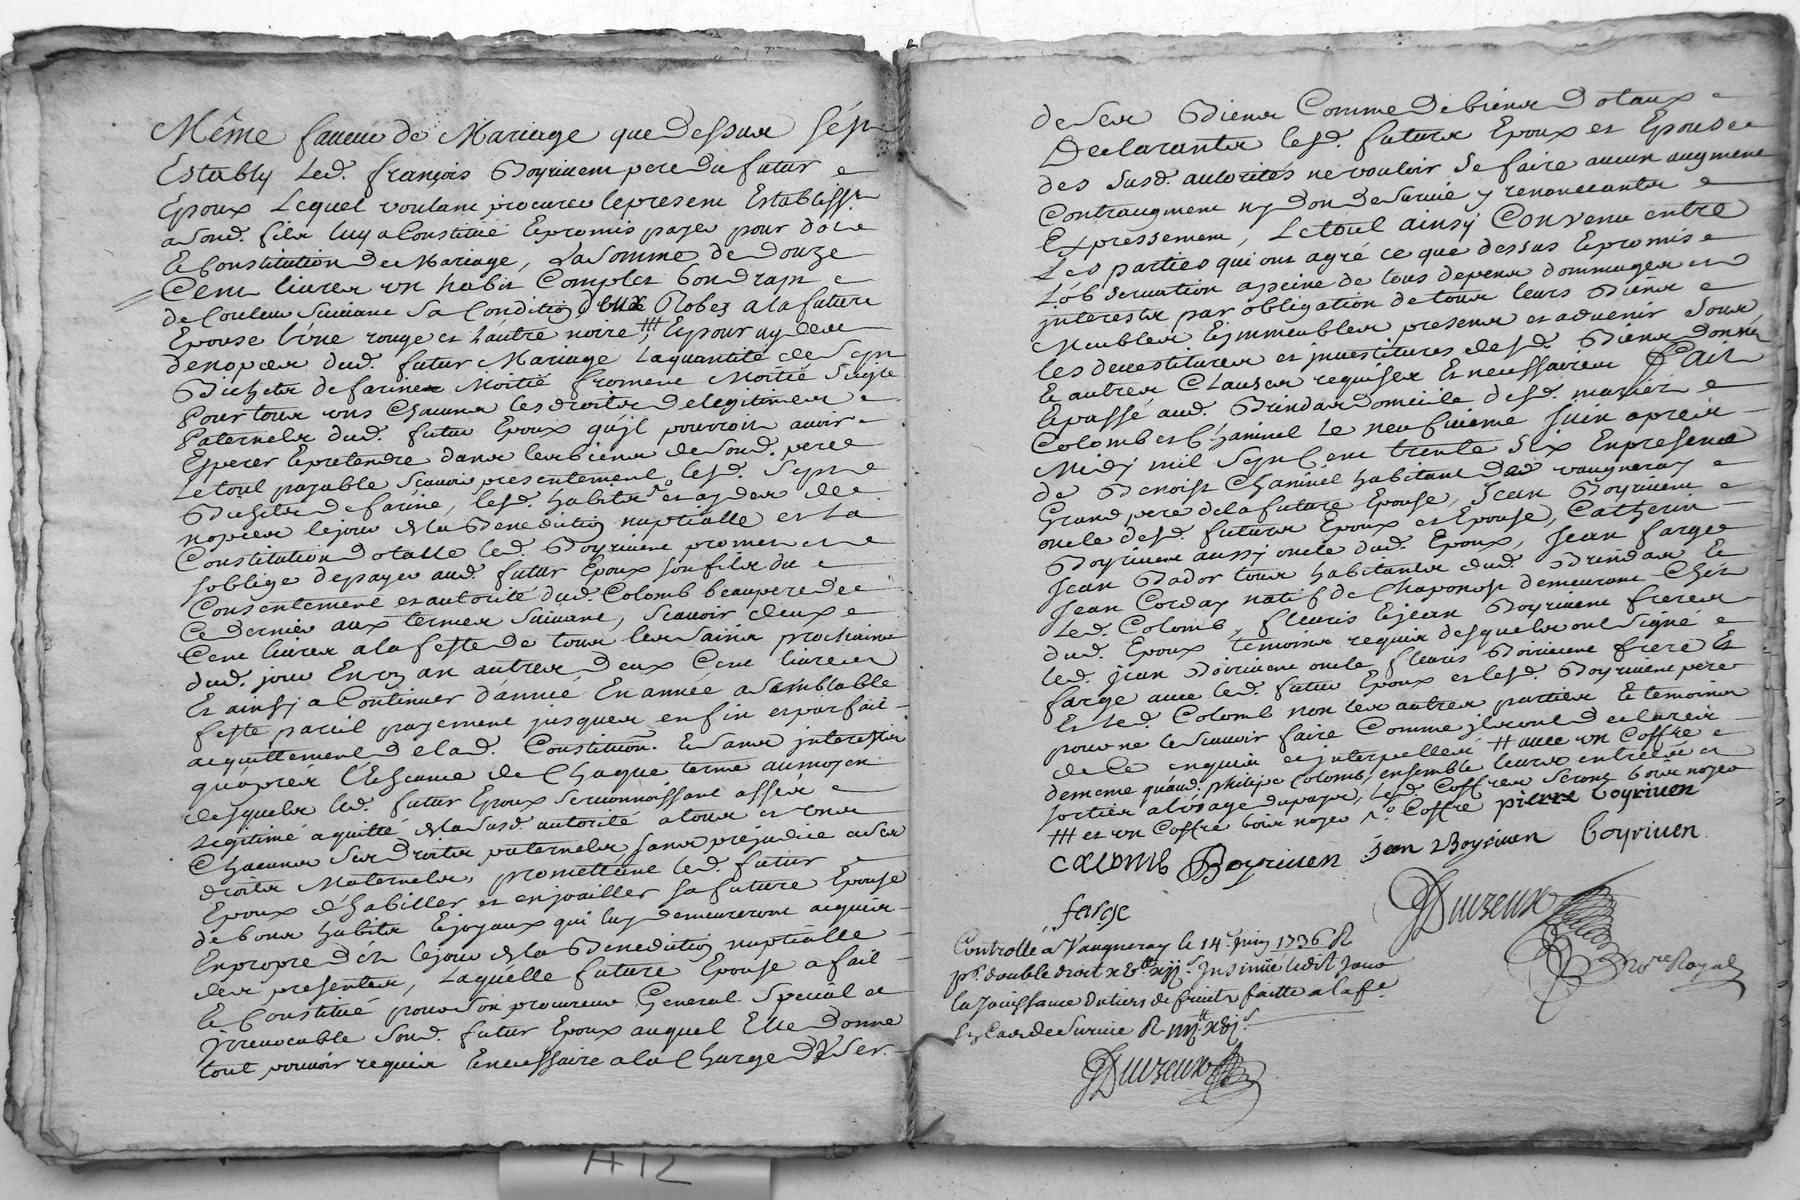 Même faveur de Mariage que dessus s'est
Estably Led. françois Boyriuent pere du futur
Epoux Lequel voulant procurer le present Establisst
a sond. fils luy a Constitué Et promis payer pour dot
Et Constitution de Mariage, La somme de douze
Cent livres un habit Complet bon drap
de Couleur Suivant Sa Condition deux Robes a la future
Epouse L'une rouge et L'autre noire ttt, Et pour ayder
de nopces dud. futur Mariage La quantité de Sept
Bichets de farine Moitié froment Moitié Seigle
pour tous uns Chacuns les droits de legitimes
Paternels dud. futur Epoux qu'jl pourroit avoir
Esperer Et pretendre dans les biens de sond. pere
Le tout payable Scavoir presentement lesd. Sept
Bichets de farine, lesd. habits et ayder de
nopces le jour de la Benediction nuptialle et La
Constitution dotalle led. Boyriuent promet et
s'oblige de payer aud. futur Epoux son fils du
Consentement et autorité dud. Colomb beaupere de
Ce dernier aux termes Suivant, Scavoir deux
Cent livres a la feste de tous les Saints prochaine
dud. jour En un an autres deux Cent livres
Et ainsy a Continuer d'année En année a Semblable
feste pareil payement jusques en fin et parfait
acquittement de lad. Constitution. Et sans interests
qu'après l'Escance de Chaque terme au moyen
desquels led. futur Epoux se reconnoissant assés
Legitimé a quitté de la susd. autorité a tous et uns
Chacuns Ses droits paternels sans préjudice a ses
droits Maternels, promettant led. futur
Epoux d'habiller et enjoailler sa future Epouse
de bons habits Et joyaux qui luy demeureront acquis
En propre dès le jour de la Benediction nuptialle
des presentes, Laquelle future Epouse a fait
Et Constitué pour son procureur General Special et
jrrevocable Sond. futur Epoux auquel Elle donne
tout pouvoir requis Et necessaire a la Charge de Ses
de Ses Biens Comme de biens dotaux
Declarants lesd. futurs Epoux et Epouse
des Susd. autorités ne vouloir Se faire aucun augment
Contraugment ny don de Survie y renoncants
Expressement, Le tout ainsy Convenu entre
Les parties qui ont agré ce que dessus Et promis
L'observation a peine de tous depens dommages et
interests par obligation de tous leurs Biens
Meubles Et immeubles presens et advenir Sous
les devestitures et jnvestitures desd. Biens donnés
Et autres Clauses requises Et necessaires Fait
Et passé aud. Brindas domicile desd. mariés
Colomb et Chaninel Le neufvieme Juin apres
Midy mil Sept Cent trente Six En presence
de Benoist Chaninel habitant dud. vaugneray
Grand pere de la future Epouse, Jean Boyriuent
oncle desd. futurs Epoux et Epouse, Catherin
Boyriuent aussy oncle dud. Epoux, Jean farge
Jean Bador tous habitants dud. Brindas Et
Jean Corday natif de Chaponost demeurant Chés
Led. Colomb, fleuris Et jean Boyriuent freres
dud. Epoux temoins requis desquels ont Signé
led. jean Boiriuent oncle fleuris Boiriuent frere Et
farge avec led. futur Epoux et lesd. Boyriuent pere
Et led. Colomb non les autres parties Et temoins
pour ne le Scavoir faire Comme jls ont declaré
de Ce enquis et interpellés # avec un Coffre
de meme quaud. philipe Colomb, ensemble leurs entrées et
sorties a l'usage du pays, lesd. Coffres Seront bois noyer
ttt et un Coffre bois noyer Coffre pierre boyriuen
colomb Boyriuen jean Boyriuen boyriuen
farge
Duvzeux
Nore Royal
Controllé à Vaugneray le 14e juin 1736 R
pr double droit Insinué ledit Jour
la Jouissance du tiers de fruits faitte a la fe
En Cas de Survie R
Duvzeux
A12